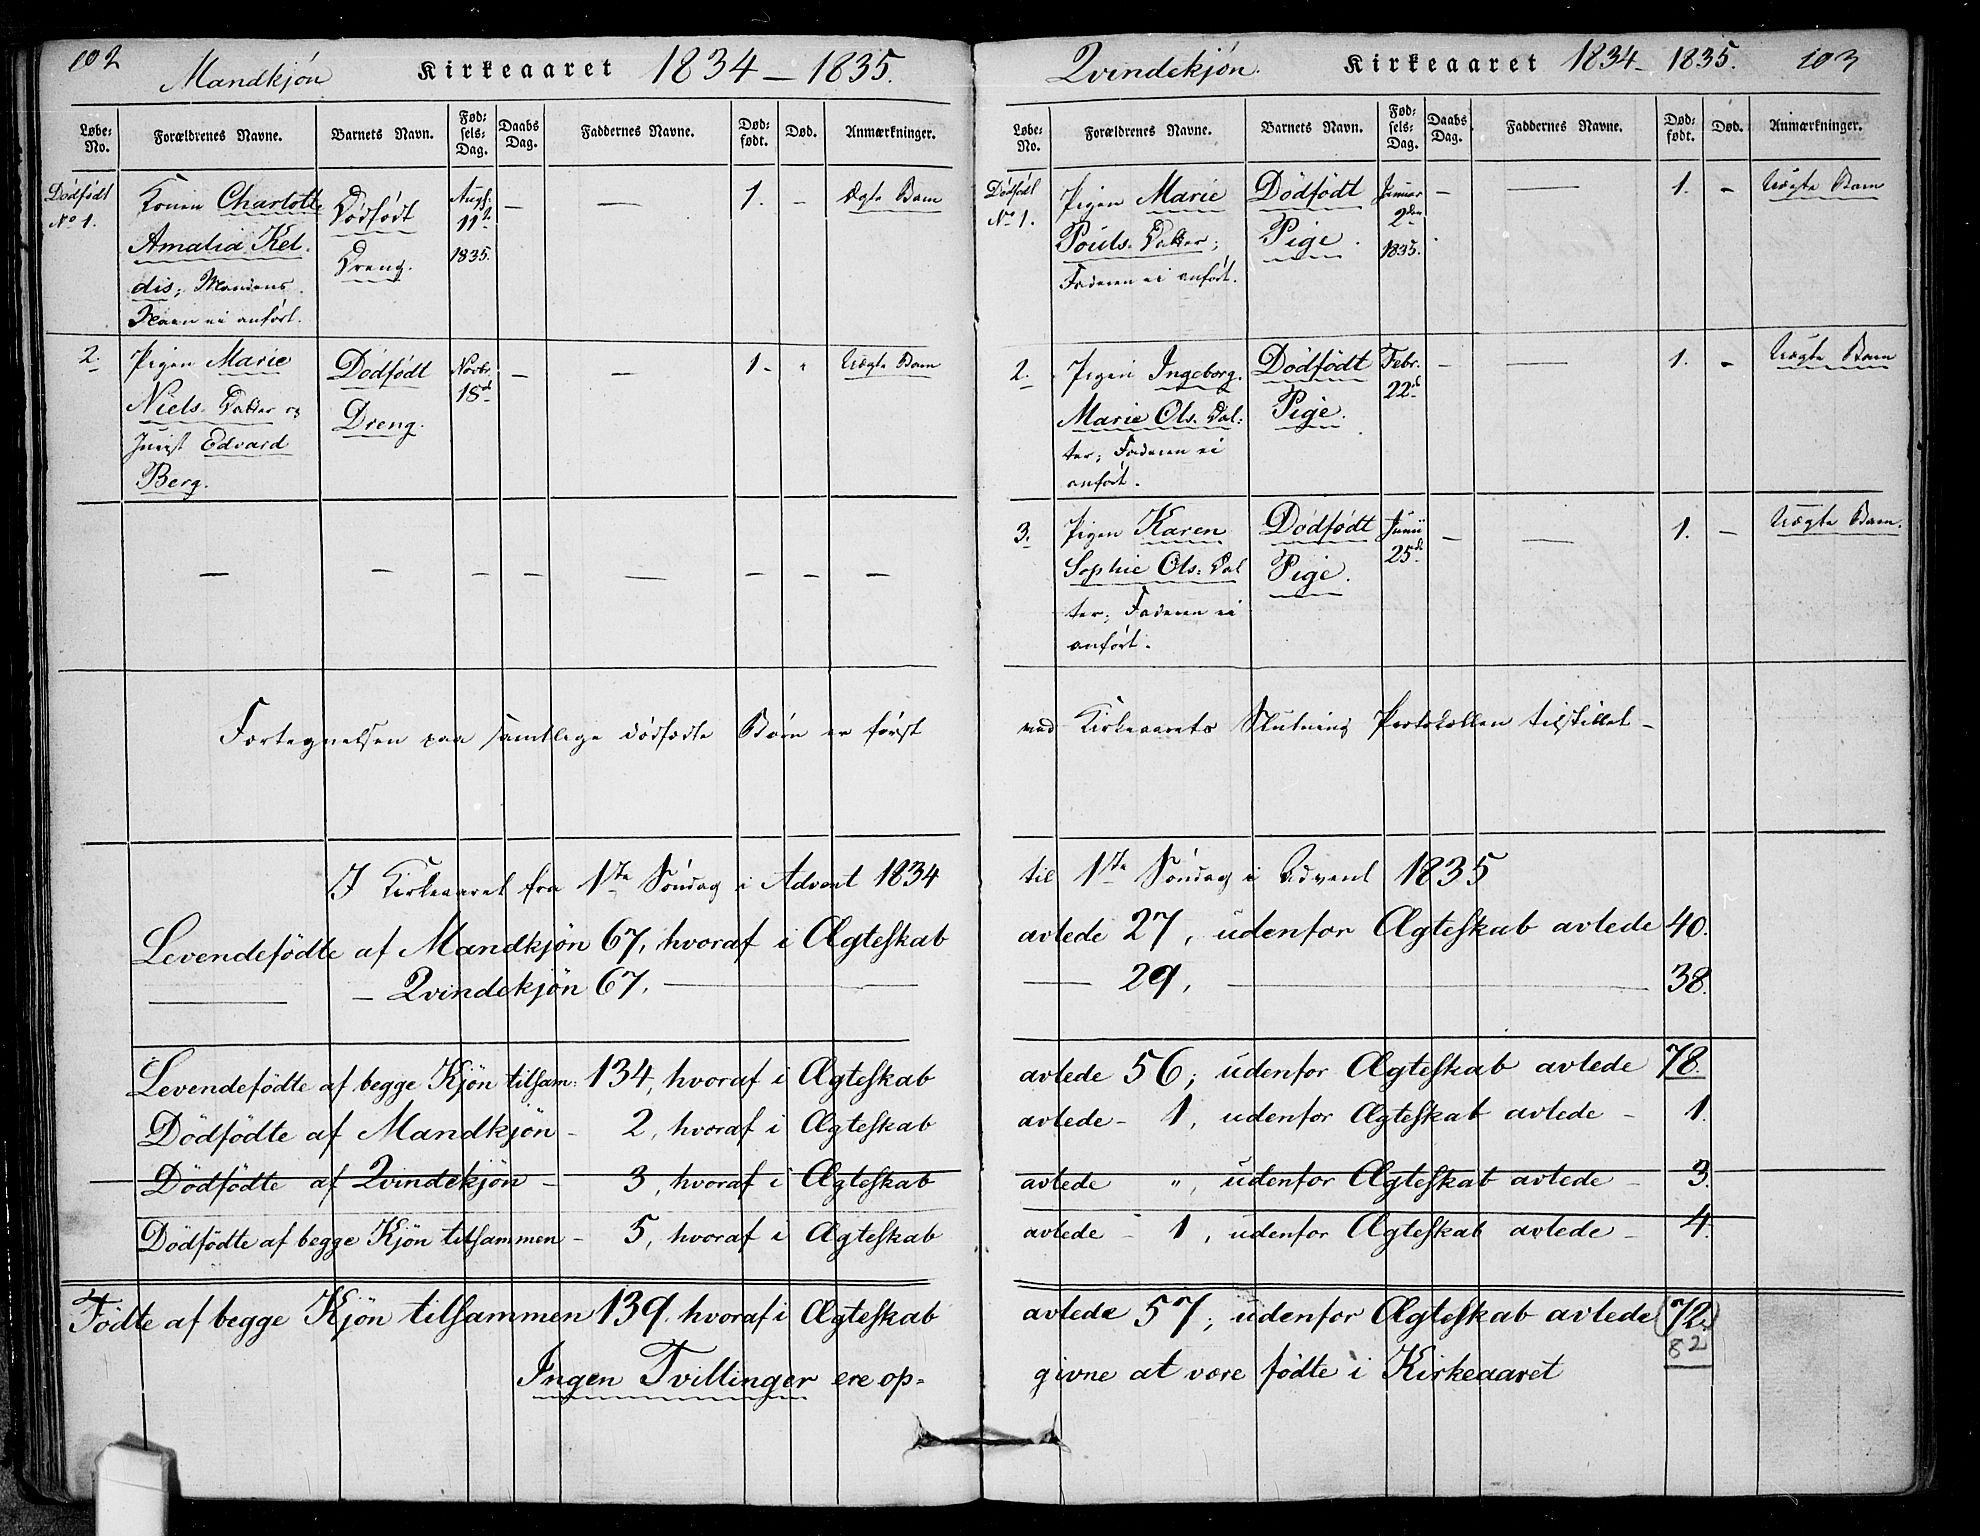 102
Mandkjön Kirkeaaret 1834 – 1835.
Løbe-No. Forældrenes Navne. Barnets Navn. Fødsels-Dag. Daabs Dag. Faddernes Navne. Dødfødt. Død. Anmærkninger.
Dödfödt No 1. Konen Charlotte Dödfödt Aug. 11t – — 1. – Ægte Barn
Amalia Kel- Dreng. 1835.
dis; Mandens
Navn ei anført.
2. Pigen Marie Dödfödt Novbr. – — 1. " Uægte Barn
Niels-Datter og Dreng. 18d
Edvard
Berg.
— — – – — – – —
Fortegnelsen paa samtlige dödfødte Börn er först
I Kirkeaaret fra 1ste Söndag i Advent 1834
Levendefödte af Mandkjön 67, hvoraf i Ægteskab
— – Qvindekjön 67, —
Levendefödte af begge Kjön tilsam: 134, hvoraf i Ægteskab
Dödfödte af Mandkjön – 2, hvoraf i Ægteskab
Dödfödte af Qvindekjön – 3, hvoraf i Ægteskab
Dödfödte af begge Kjön tilsammen – 5, hvoraf i Ægteskab
Födte af begge Kjön tilsammen 139. hvoraf i Ægteskab
Ingen Tvillinger ere op-
Qvindekjön. Kirkeaaret 1834 – 1835. 103
Løbe-No. Forældrenes Navne. Barnets Navn. Fødsels-Dag. Daabs Dag. Faddernes Navne. Dødfødt. Død. Anmærkninger.
Dödfödt No 1. Pigen Marie Dödfödt Januar – — 1. – Uægte Barn
Pouls-Datter; Pige. 2den 1835.
Faderen ei anført.
2. Pigen Ingeborg Dödfödt Febr. – — 1. – Uægte Barn
Marie Ols-Dat- Pige. 22d
ter; Faderen ei
anført.
3. Pigen Karen Dödfödt Junii – — 1. – Uægte Barn.
Sophie Ols-Dat Pige. 25d
ter; Faderen ei
anført.
ved Kirkeaarets Slutning Protokollen tilstillet –
til 1ste Söndag i Advent 1835
avlede 27, udenfor Ægteskab avlede 40.
— 29, — 38.
avlede 56; udenfor Ægteskab avlede 78.
avlede – 1, udenfor Ægteskab avlede – 1.
avlede ", udenfor Ægteskab avlede – 3.
avlede – 1, udenfor Ægteskab avlede – 4.
avlede 57; udenfor Ægteskab avlede (72.)
82
givne at være födte i Kirkeaaret